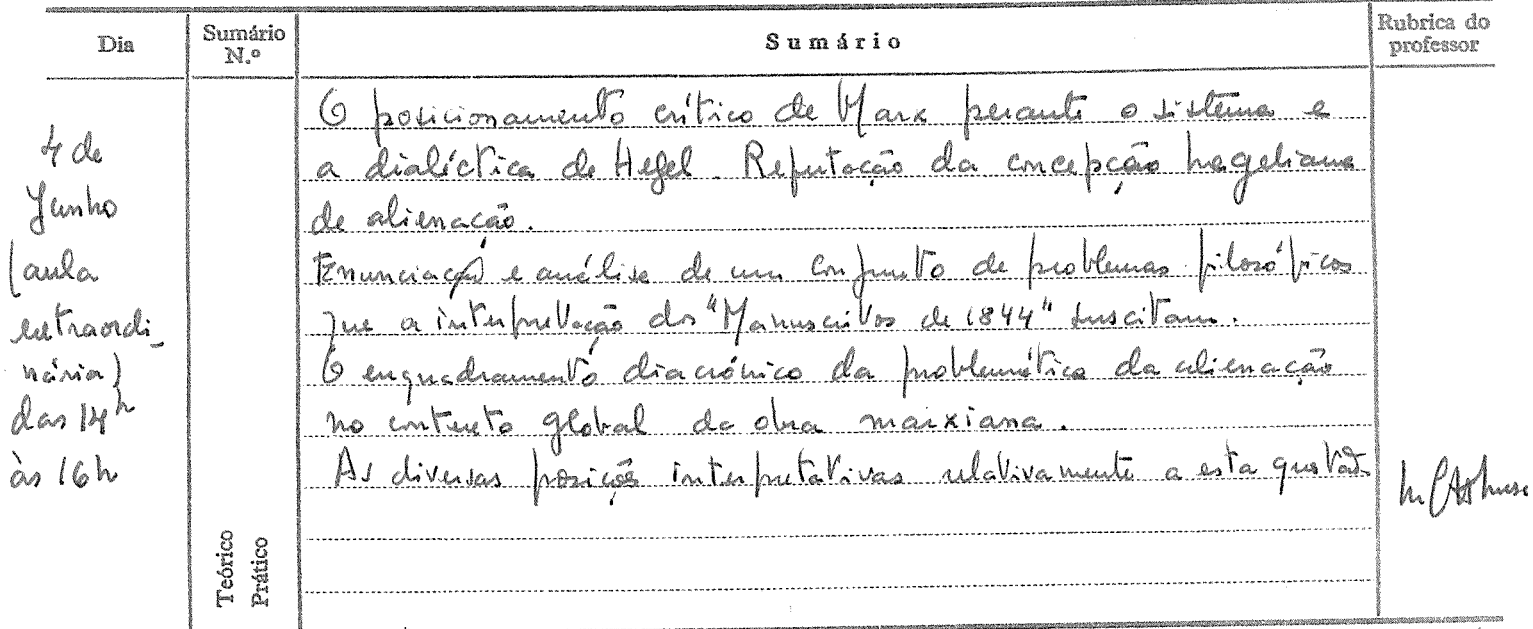 Dia
Sumário
N.º
Sumário
Rubrica do
professor
4 de
Junho
(aula
extraordi_
nária)
das 14h
às 16h
O posicionamento crítico de Marx perante o sistema e
a dialéctica de Hegel. Refutação da concepção hegeliana
de alienação.
Enunciação e análise de um conjunto de problemas filosóficos
que a interpretação dos "Manuscritos de 1844" suscitam.
O enquadramento diacrónico da problemática da alienação
no contexto global da obra marxiana.
As diversas posições interpretativas relativamente a esta questão
Teórico
Prático